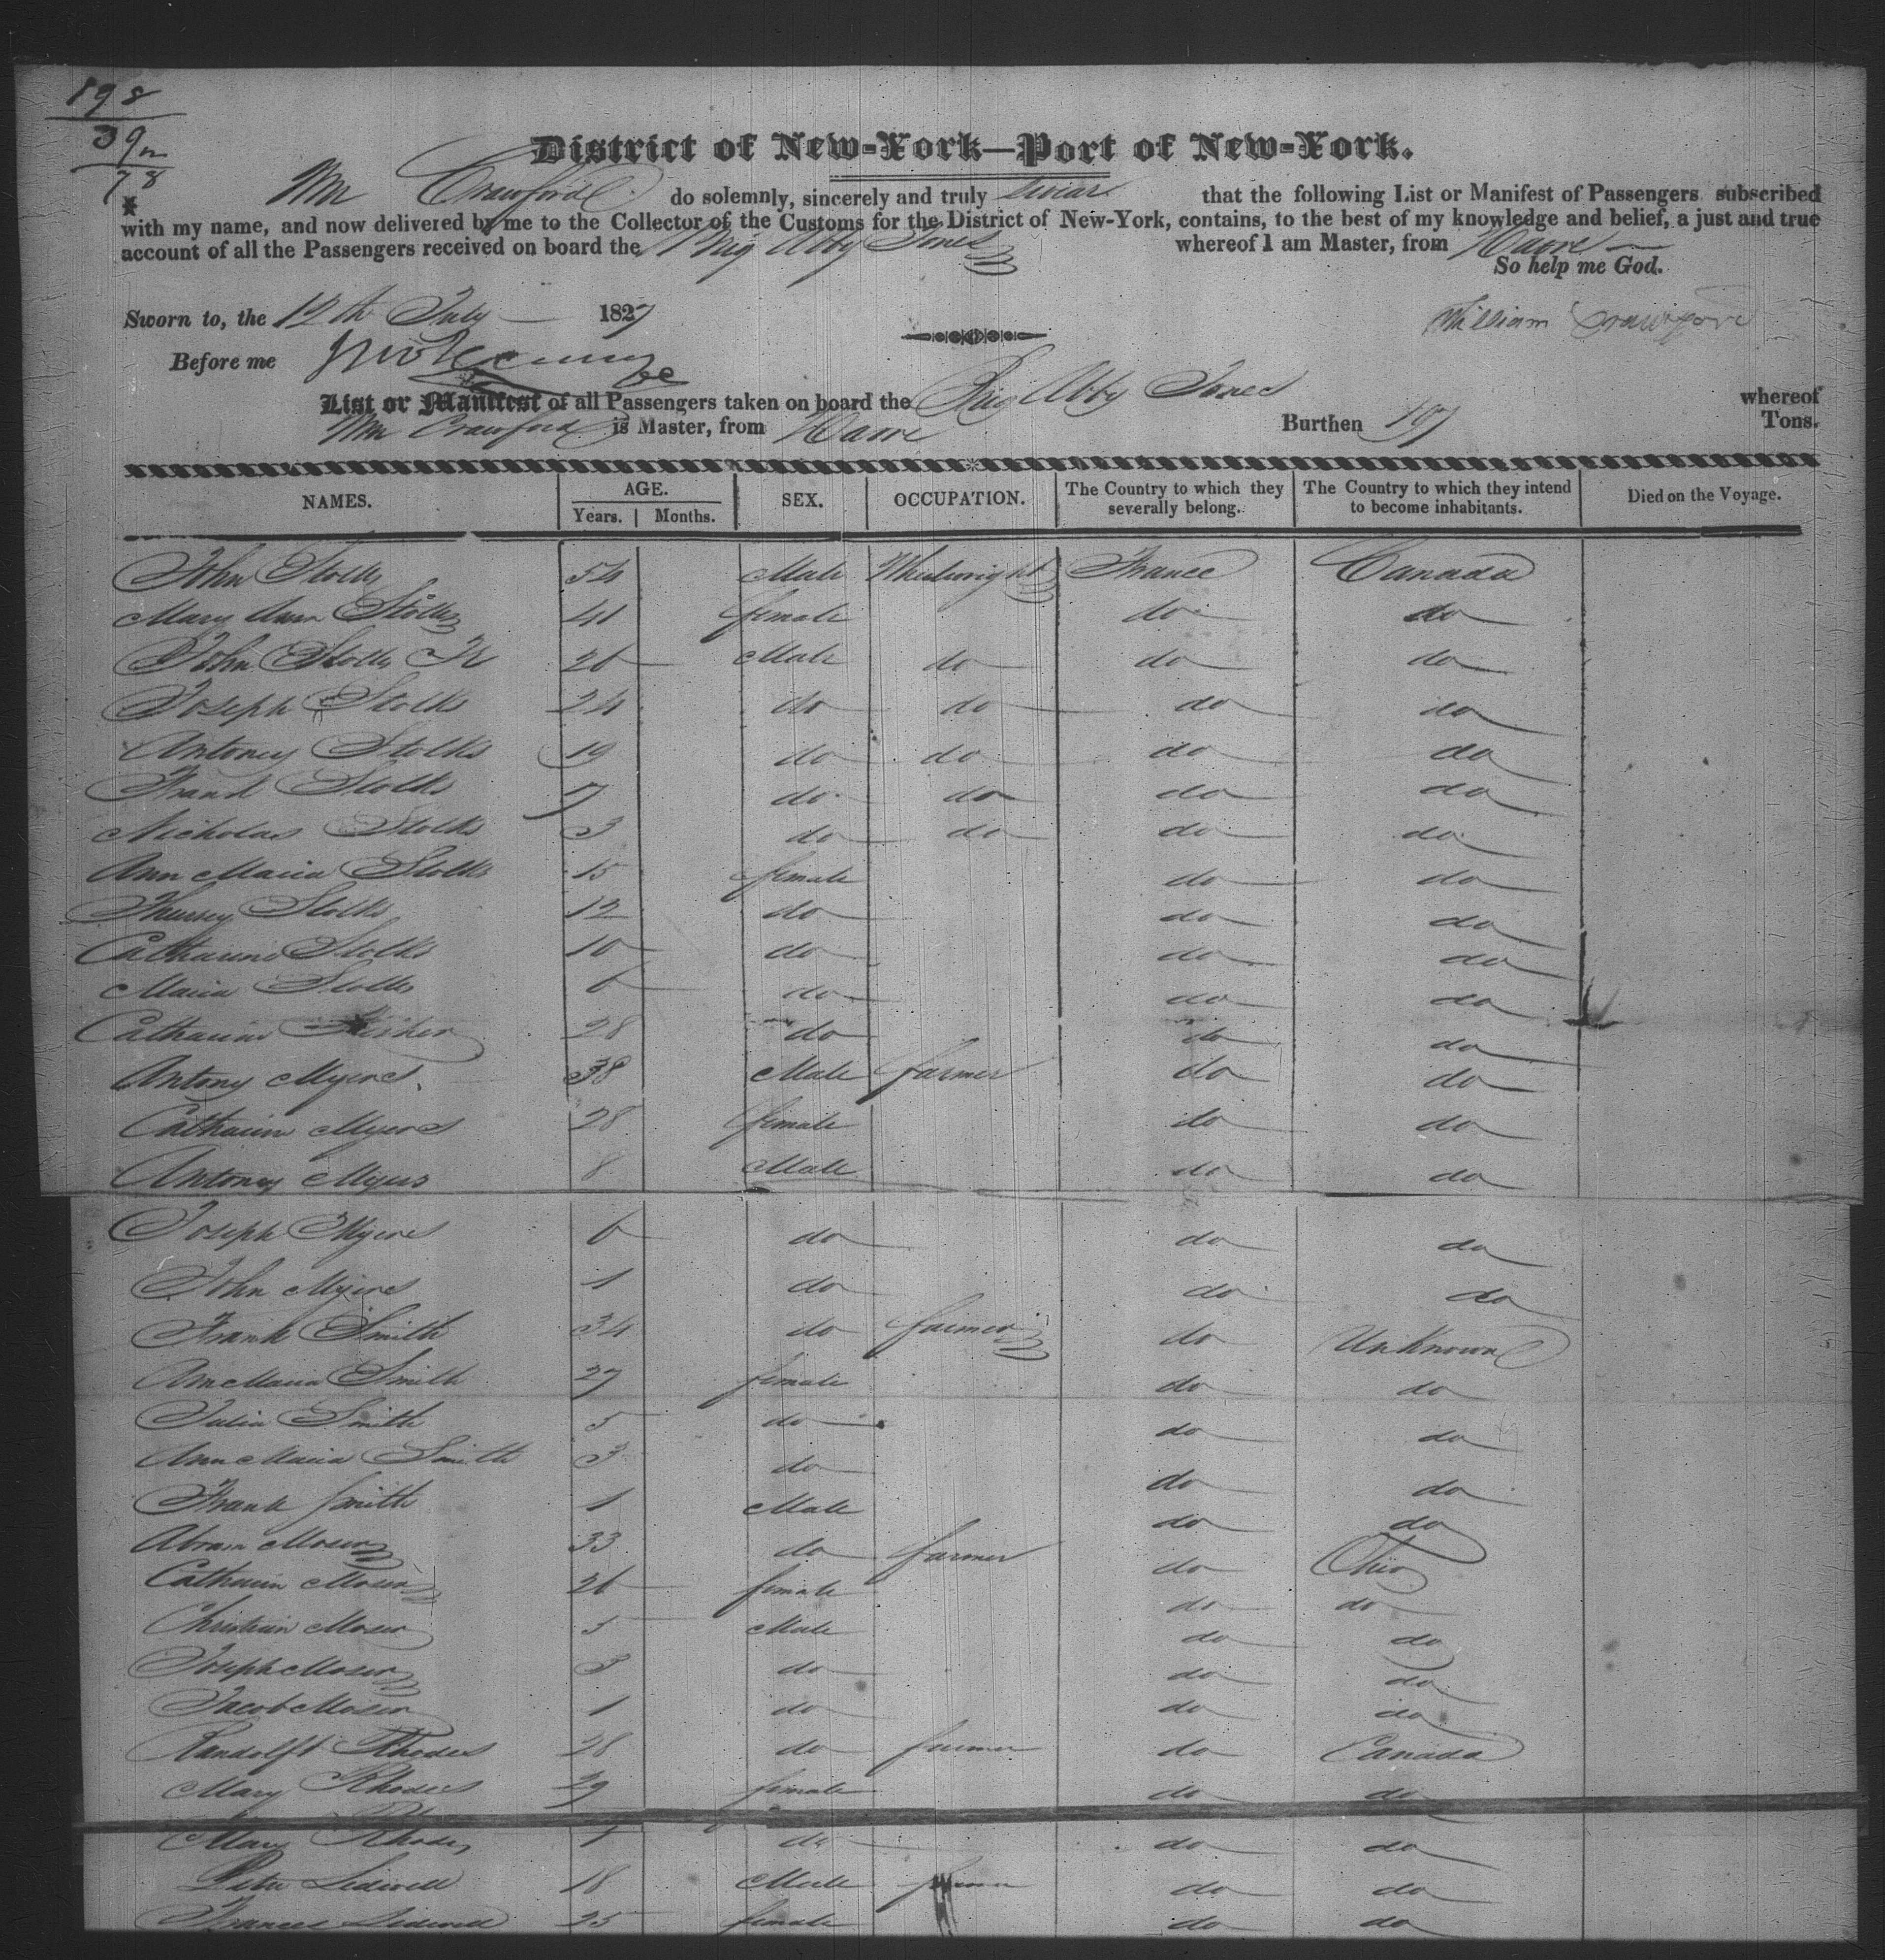 198
39
78
District of New-York—Port of New-York.
Wm Crawford do solemnly, sincerely and truly swear that the following List or Manifest of Passengers subscribed
with my name, and now delivered by me to the Collector of the Customs for the District of New-York, contains, to the best of my knowledge and belief, a just and true
account of all the Passengers received on board the Brig Abby Jones whereof I am Master, from Havre
So help me God.
Sworn to, the 12th July 1827 William Crawford
Before me
List or Manifest of all Passengers taken on board the Brig Abby Jones whereof
Wm Crawford is Master, from Havre Burthen 197 Tons.
NAMES. AGE. SEX. OCCUPATION. The Country to which they severally belong. The Country to which they intend to become inhabitants. Died on the Voyage.
Years. Months.
John Stolks 54 Male Wheelwright France Canada
Mary Ann Stolks 41 female do do
John Stolks Jr 26 Male do do do
Joseph Stolks 24 do do do do
Antoney Stolks 19 do do do do
Frank Stolks 7 do do do do
Nicholas Stolks 3 do do do do
Ann Maria Stolks 15 female do do
Stolks 12 do do do
Catharine Stolks 10 do do do
Maria Stolks 6 do do do
Catharine Fisher 28 do do do
Antony Myers 38 Male farmer do do
Catharine Myers 28 female do do
Antoney Myers 8 Male do do
Joseph Myers 6 do do do
John Myers 1 do do do
Frank Smith 34 do farmer do Unknown
Ann Maria Smith 27 female do do
Julia Smith 5 do do do
Ann Maria Smith 3 do do do
Frank Smith 1 Male do do
Abram Moser 33 do farmer do Ohio
Catharine Moser 26 female do do
Christian Moser 5 Male do do
Joseph Moser 3 do do do
Jacob Moser 1 do do do
Randolft Rhodes 28 do farmer do Canada
Mary Rhodes 29 female do do
Mary Rhodes 1 do do do
Peter Sidwell 18 Male do do
Frances Sidwell 25 female do do